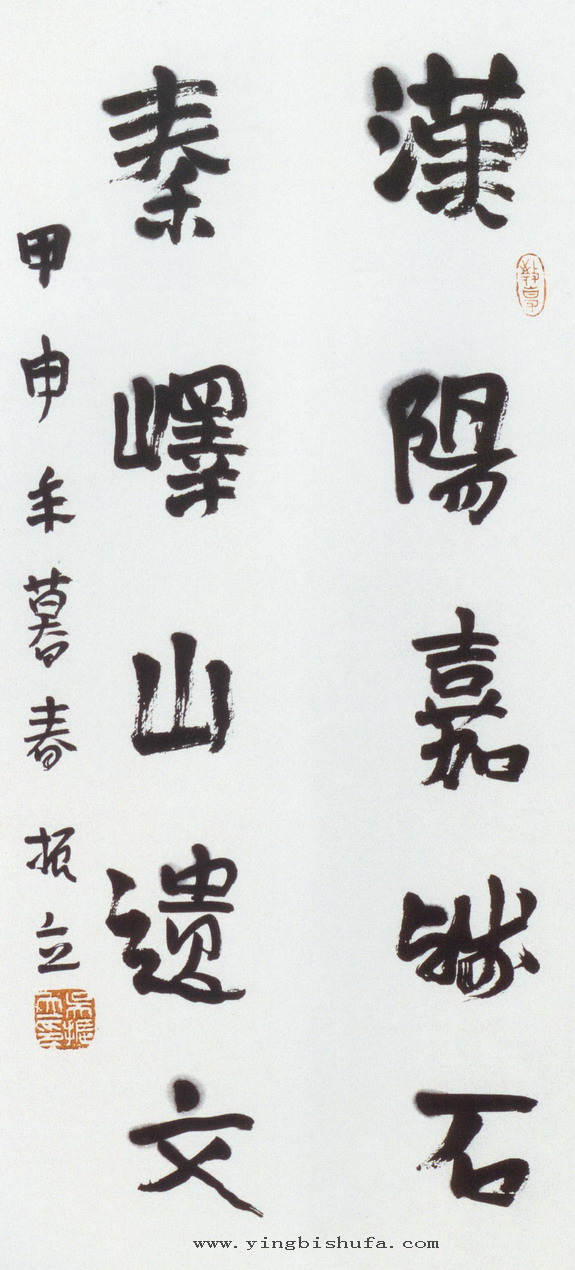 漢陽嘉殘石
秦嶧山遺文
甲申年暮春 振立
吳振立印
www.yingbishufa.com